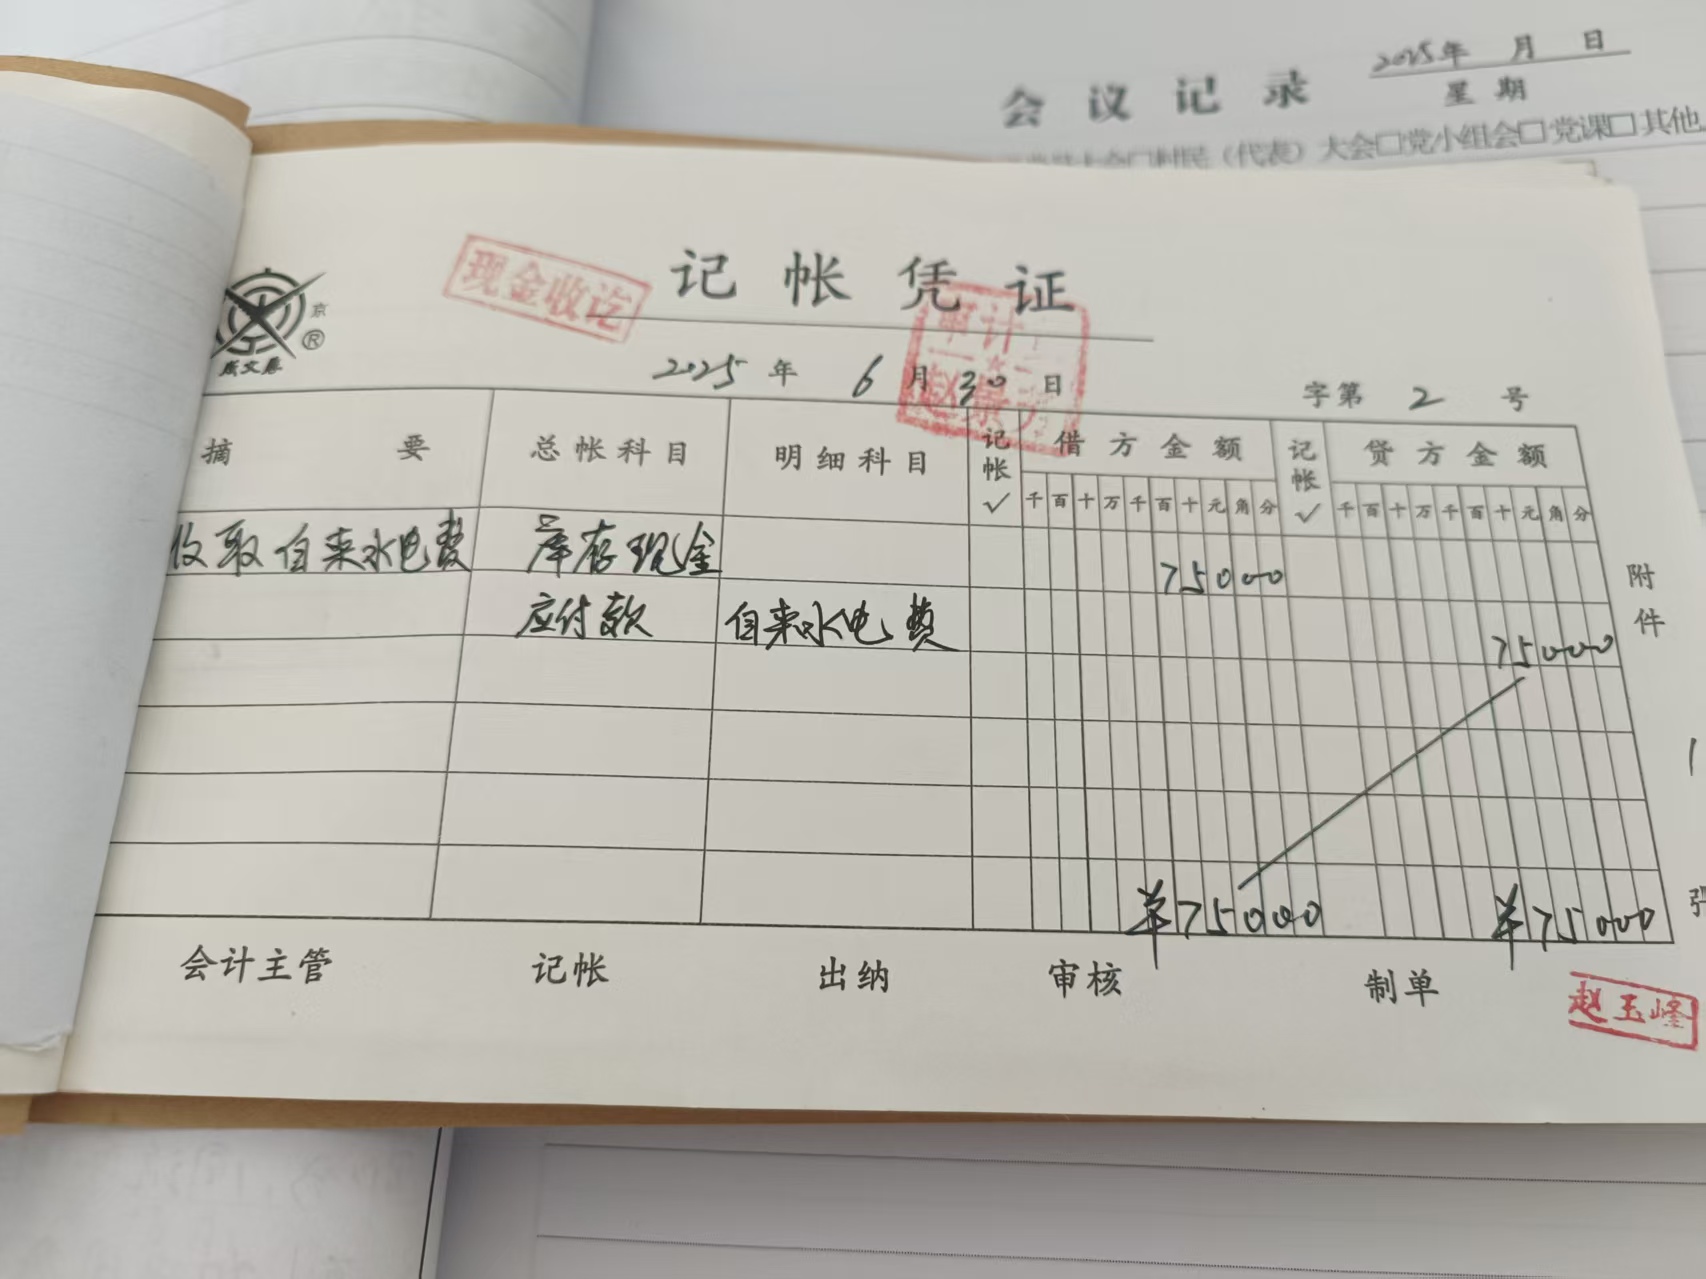 2025年 月 日
会议记录
星期
村民（代表）大会□党小组会□党课□其他
现金收讫
记帐凭证
审计
赵景
京
®
成文厚
2025年 6月30日
字第 2 号
摘要 总帐科目 明细科目 记帐√ 借方金额 记帐√ 贷方金额
千百十万千百十元角分 千百十万千百十元角分
收取自来水电费 库存现金 75000
应付款 自来水电费 75000
附件
1
张
¥75000 ¥75000
会计主管 记帐 出纳 审核 制单
赵玉峰